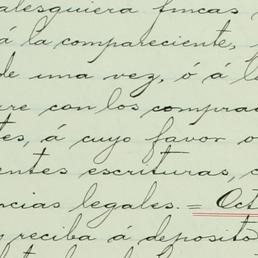 alesquiera fincas
á la compareciente,
de una vez, ó á l
re con los comprad
es, á cuyo favor o
entes escrituras,
ncias legales. = Oct
y reciba á deposito